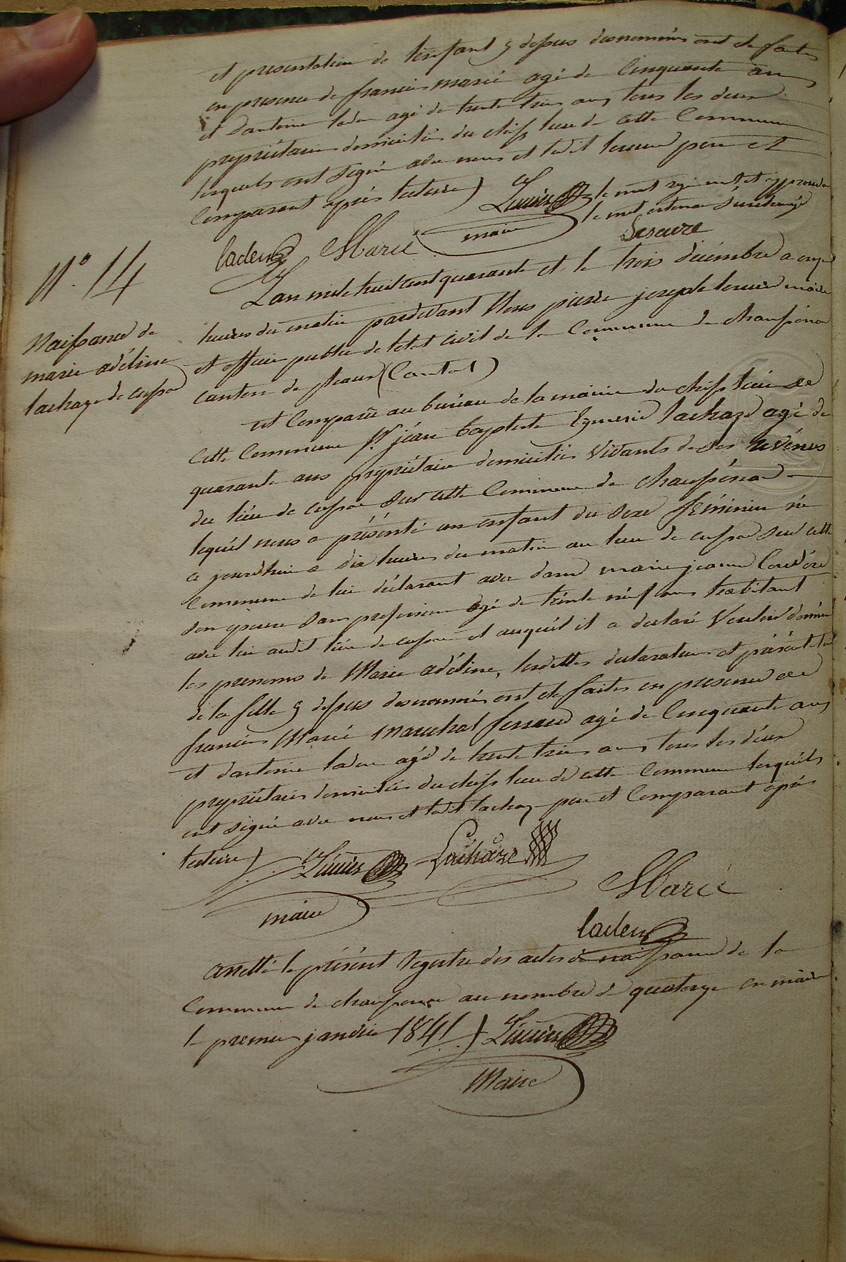 et presentation de lenfant y dessus denommés ont été faites
en presence de francois marié agé de Cinquante ans
et dantoine laden agé de trente trois ans tous les deux
propriétaires domiciliés du chef lieu de cette Commune
lesquels ont signé avec nous et ledit pere et
Comparant après lecture
le mot
le mot
maire
laden Marié
N° 14
Naissance de
marie adéline
lachaze de
Lan mile huit cent quarante et le trois décembre a onze
heures du matin pardevant Nous pierre joseph maire
et officier public de letat Civil de la Commune de
canton de pleaux (Cantal)
est Comparu au bureau de la mairie du chef lieu de
cette Commune Sr jean baptiste lachaze agé de
quarante ans propriétaire domiciliés Vivants de ses revénus
du lieu de sur cette Commune de
lequel nous a présenté un enfant du sexe féminin né
ce jourdhui a dix heures du matin au lieu de sur cette
Commune de lui déclarant avec dame marie jeanne
son epouse sans profession agé de trente neuf ans habitant
avec lui audit lieu de et auquel il a declaré Vouloir donner
les prenoms de Marie adéline, lesdittes declaration et présentation
de la fille y dessus denommés ont été faites en presence de
francois Marié Marechal ferrand agé de Cinquante ans
et dantoine laden agé de trente trois ans tous les deux
propriétaires domiciliés du chef lieu de cette Commune lesquels
ont signé avec nous et ledit lachaze pere et Comparant après
lecture
Lachaze
Marié
maire
laden
arretté le présent registre des actes de naissance de la
Commune de au nombre de quatorze en mairie
le premier janvier 1841
Maire